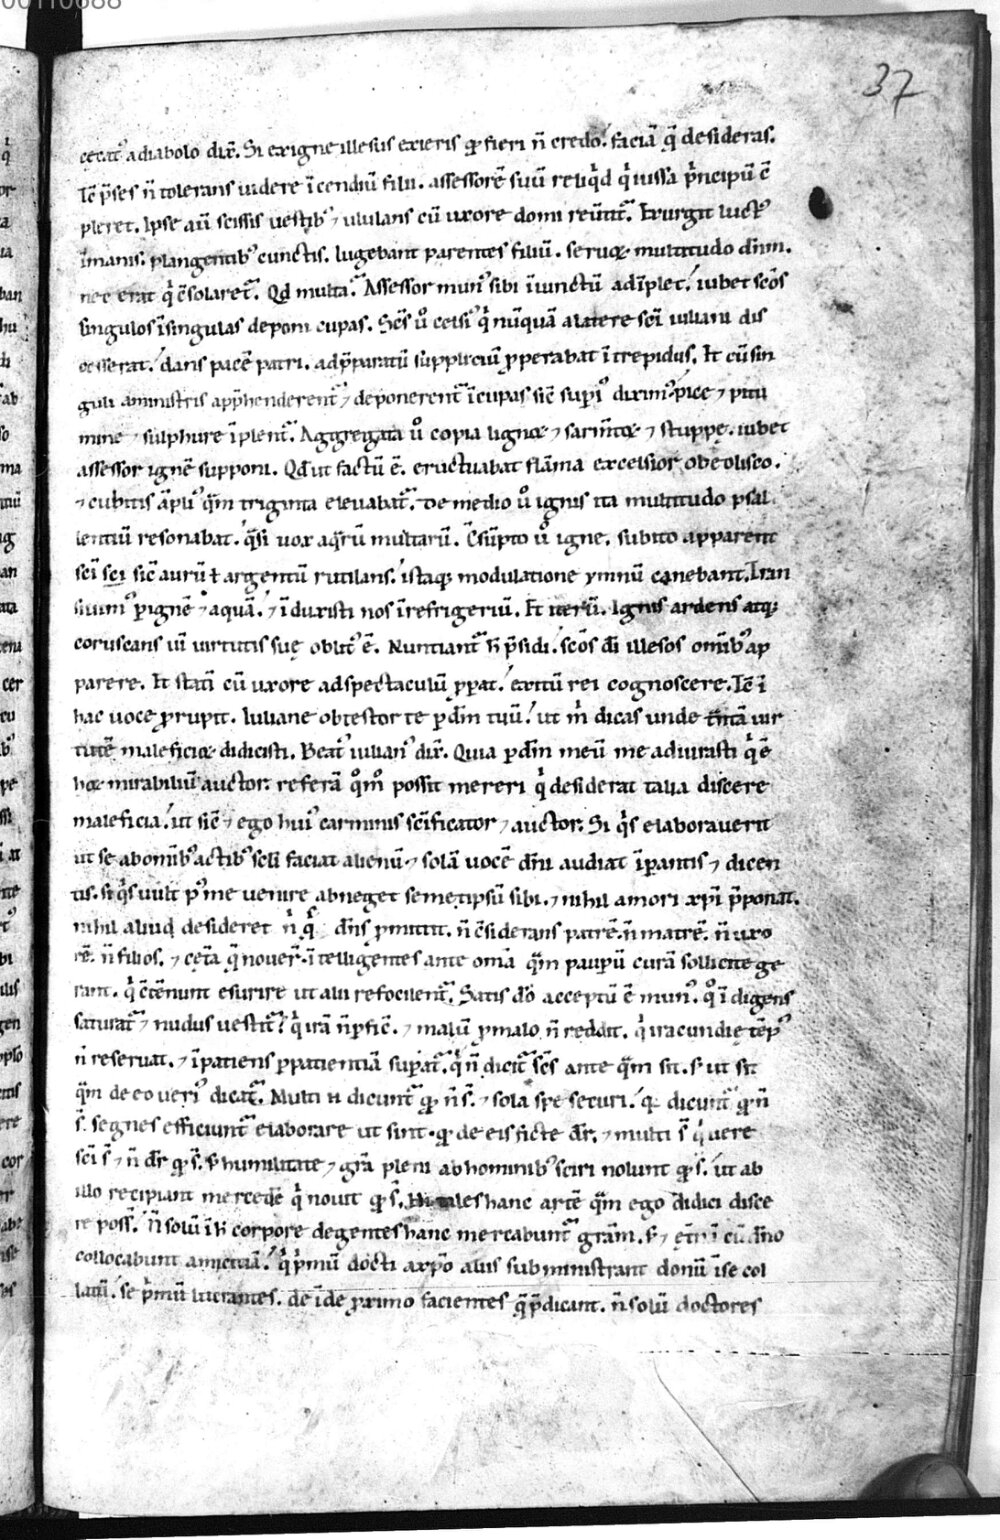 37
cęcat᷒ a diabolo dix̄. Si ex igne illesus exieris qđ fieri n̄ credo. faciā q̄ desideras.
Tc̄ p̄ses n̄ tolerans uidere īcendiū filii. assessorē suū reliq̇d q̇ iussa p̄ncipū ē
pleret. Ipse aū scissis uestib᷒ ⁊ ululans cū uxore domū reūtit᷑. Exurgit luct᷒
īmanis. plangentib᷒ cunctis. lugebant parentes filiū. seruoꝝ multitudo dn̄m.
nec erat q̇ c̄solaret᷑. Qd multa. Assessor mun᷒ sibi īiunctū adīplet. iubet sc̄os
singulos ī singulas deponi cupas. Sc̄s u̇ celsi᷒ q̇ nūquā a latere sc̄i iuliani dis
cesserat. dans pacē patri. ad p̄paratū suppliciū ꝓperabat ītrepidus. Et cū sin
guli a ministris app̄henderent᷑ ⁊ deponerent᷑ ī cupas sic̄ supi᷒ dixim᷒ pice ⁊ pitu
mine ⁊ sulphure īplent᷑. Aggregata u̇ copia lignoꝝ ⁊ sarm̄toꝝ ⁊ stuppę. iubet
assessor ignē supponi. Qđ ut factū ē. eructuabat flāma excelsior obeolisco.
⁊ cubitis āpli᷒ q̄m triginta eleuabat᷑. De medio u̇ ignis ita multitudo psal
lentiū resonabat. q̄si uox aq̄rū multarū. C̄sūpto u̇ igne. subito apparent
sc̄i sci sic̄ aurū ł argentū rutilans. istaq; modulatione ymnū canebant. Tran
siuim᷒ p ignē ⁊ aquā. ⁊ īduxisti nos ī refrigeriū. Et iterū. Ignis ardens atq;
coruscans ui᷒ uirtutis suę oblit᷒ ē. Nuntiant᷑ h̄ p̄sidi. sc̄os dī illesos omīb᷒ ap
parere. Et stati cū uxore ad spectaculū ꝓpat. exitū rei cognoscere. Tc̄ ī
hac uoce prupit. Iuliane obtestor te p dm̄ tuū. ut m̄ dicas unde tn̄tā uir
tutē maleficioꝝ didicisti. Beat᷒ iulian᷒ dix̄. Quia p dm̄ meū me adiurasti q̇ ē
hoꝝ mirabiliū auctor. referā q̊m̊ possit mereri q̇ desiderat talia discere
maleficia. ut sic̄ ⁊ ego hui᷒ carminis sc̄ificator ⁊ auctor. Si q̇s elaborauerit
ut se ab omīb᷒ actib᷒ scl̄i faciat alienū ⁊ solā uocē dn̄i audiat īpantis ⁊ dicen
tis. si q̇s uult p᷒ me uenire abneget semetipsū sibi. ⁊ nihil amori xp̄i p̄ponat.
nihil aliud desideret n̄ q̇ dn̄s pmittit. n̄ c̄siderans patrē. n̄ matrē. n̄ uxo
rē. n̄ filios. ⁊ cet̄a q̄ nouer̄ ītelligentes ante om̄a q̄m paupū curā sollicite ge
rant. q̇ c̄tēnunt esurire ut alii refocilent᷑. Satis dō acceptū ē mun᷒. q̊ īdigens
saturat᷑ ⁊ nudus uestit᷑. q̇ irā n̄ pfic̄. ⁊ malū p malo n̄ reddit. q̇ iracundię tēp᷒
n̄ reseruat. ⁊ īpatiens p patientiā supat᷑. q̇ n̄ dicit᷑ sc̄s ante q̄m sit. s; ut sit
q̄m de eo ueri᷒ dicat᷑. Multi n̄ dicunt᷑ qđ n̄ s̄. ⁊ sola spe securi. q; dicunt᷑ qđ n̄
s̄. segnes efficiunt᷑ elaborare ut sint qđ de eis ficte dr̄. ⁊ multi s̄ q̇ uere
sc̄i s̄ ⁊ n̄ dr̄ qđ s̄. s; humilitate ⁊ grā pleni ab hominib᷒ sciri nolunt qđ s̄. ut ab
illo recipiant mercedē q̇ nouit qđ s̄. Hi tales hanc artē q̄m ego didici disce
re poss̄. N̄ solū ī h̄ corpore degentes hanc mercabunt᷑ grām. s; ⁊ ęt̄ni cū dn̄o
collocabunt amicitiā. q̇ ṗmū docti a xp̄o aliis subministrant donū ī se col
latū. se ṗmū lucrantes. deīde proximo facientes q̄ p̄dicant. n̄ solū doctores